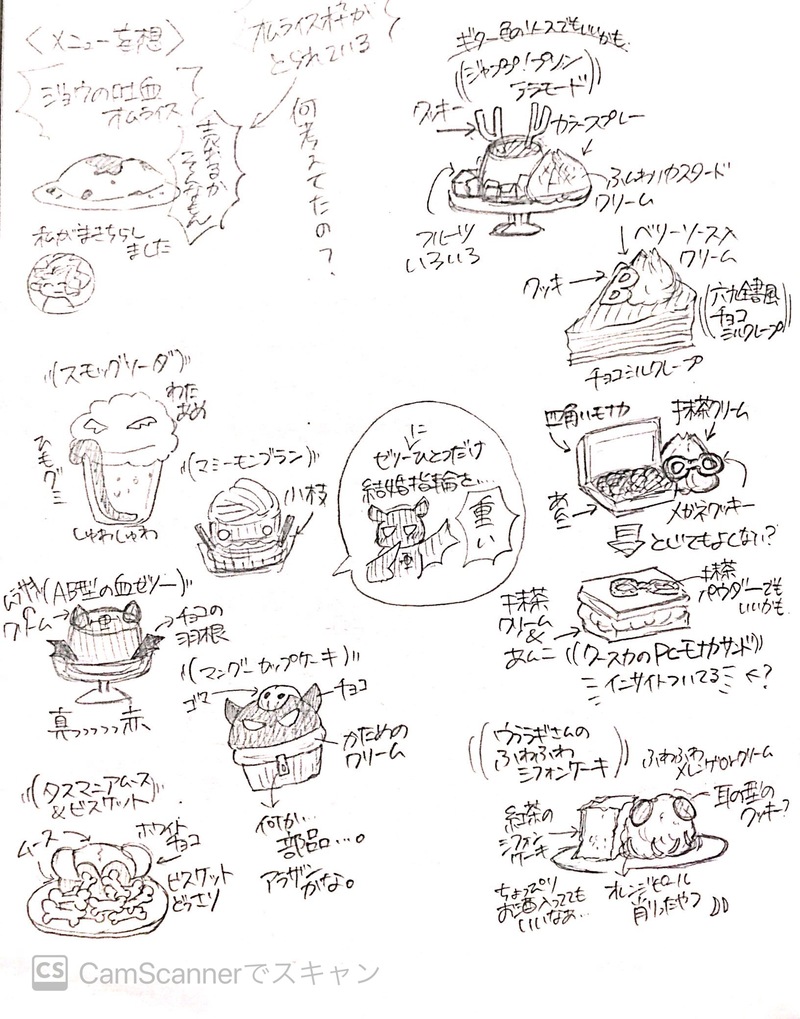 〈メニュー妄想〉
オムライス枠が
とられている
ジョウの吐血
オムライス
売れるか
そんなもん
何考えてたの?
私がまきちらし
ました
ギター色のソースでもいいかも
((ジャンプ!プリン
アラモード))
クッキー
カラースプレー
ふんわりカスタード
クリーム
フルーツ
いろいろ
ベリーソース入
クリーム
クッキー
((六九全書風
チョコ
ミルクレープ))
チョコミルクレープ
((スモッグソーダ))
わた
あめ
ヒモグミ
しゅわしゅわ
((マミーモンブラン))
小枝
に
ゼリーひとつだけ
結婚指輪を…
重い
四角いモナカ
抹茶クリーム
あんこ
メガネクッキー
とじてもよくない?
抹茶
クリーム
&
あんこ
抹茶
パウダーでも
いいかも
((ワースカのPCモナカサンド))
インサイトついてる ←?
(AB型の血ゼリー)
クリーム
チョコの
羽根
真っっっっっ赤
((マングーカップケーキ))
ゴマ
チョコ
かための
クリーム
何か…
部品…。
アラザン
かな。
((タスマニアムース
&ビスケット))
ムース
ホワイト
チョコ
ビスケット
どっさり
((ウララギさんの
ふわふわ
シフォンケーキ))
ふわふわ
メレンゲorクリーム
耳の型の
クッキー?
紅茶の
シフォン
ケーキ
ちょっぴり
お酒入ってても
いいなぁ…
オレンジピール
削ったやつ
CS CamScannerでスキャン